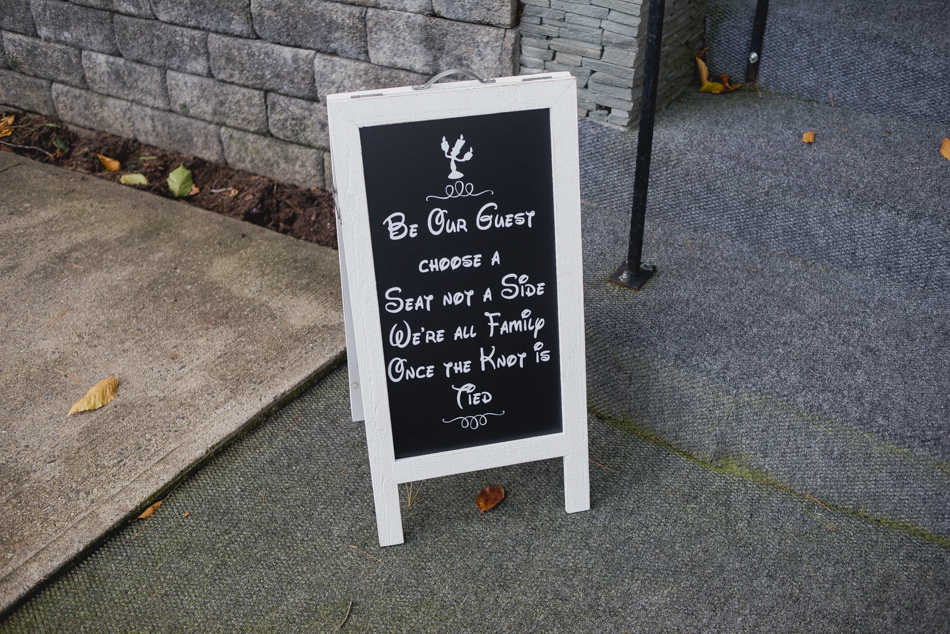 Be Our Guest
choose a
Seat not a Side
We're all Family
Once the Knot is
Tied